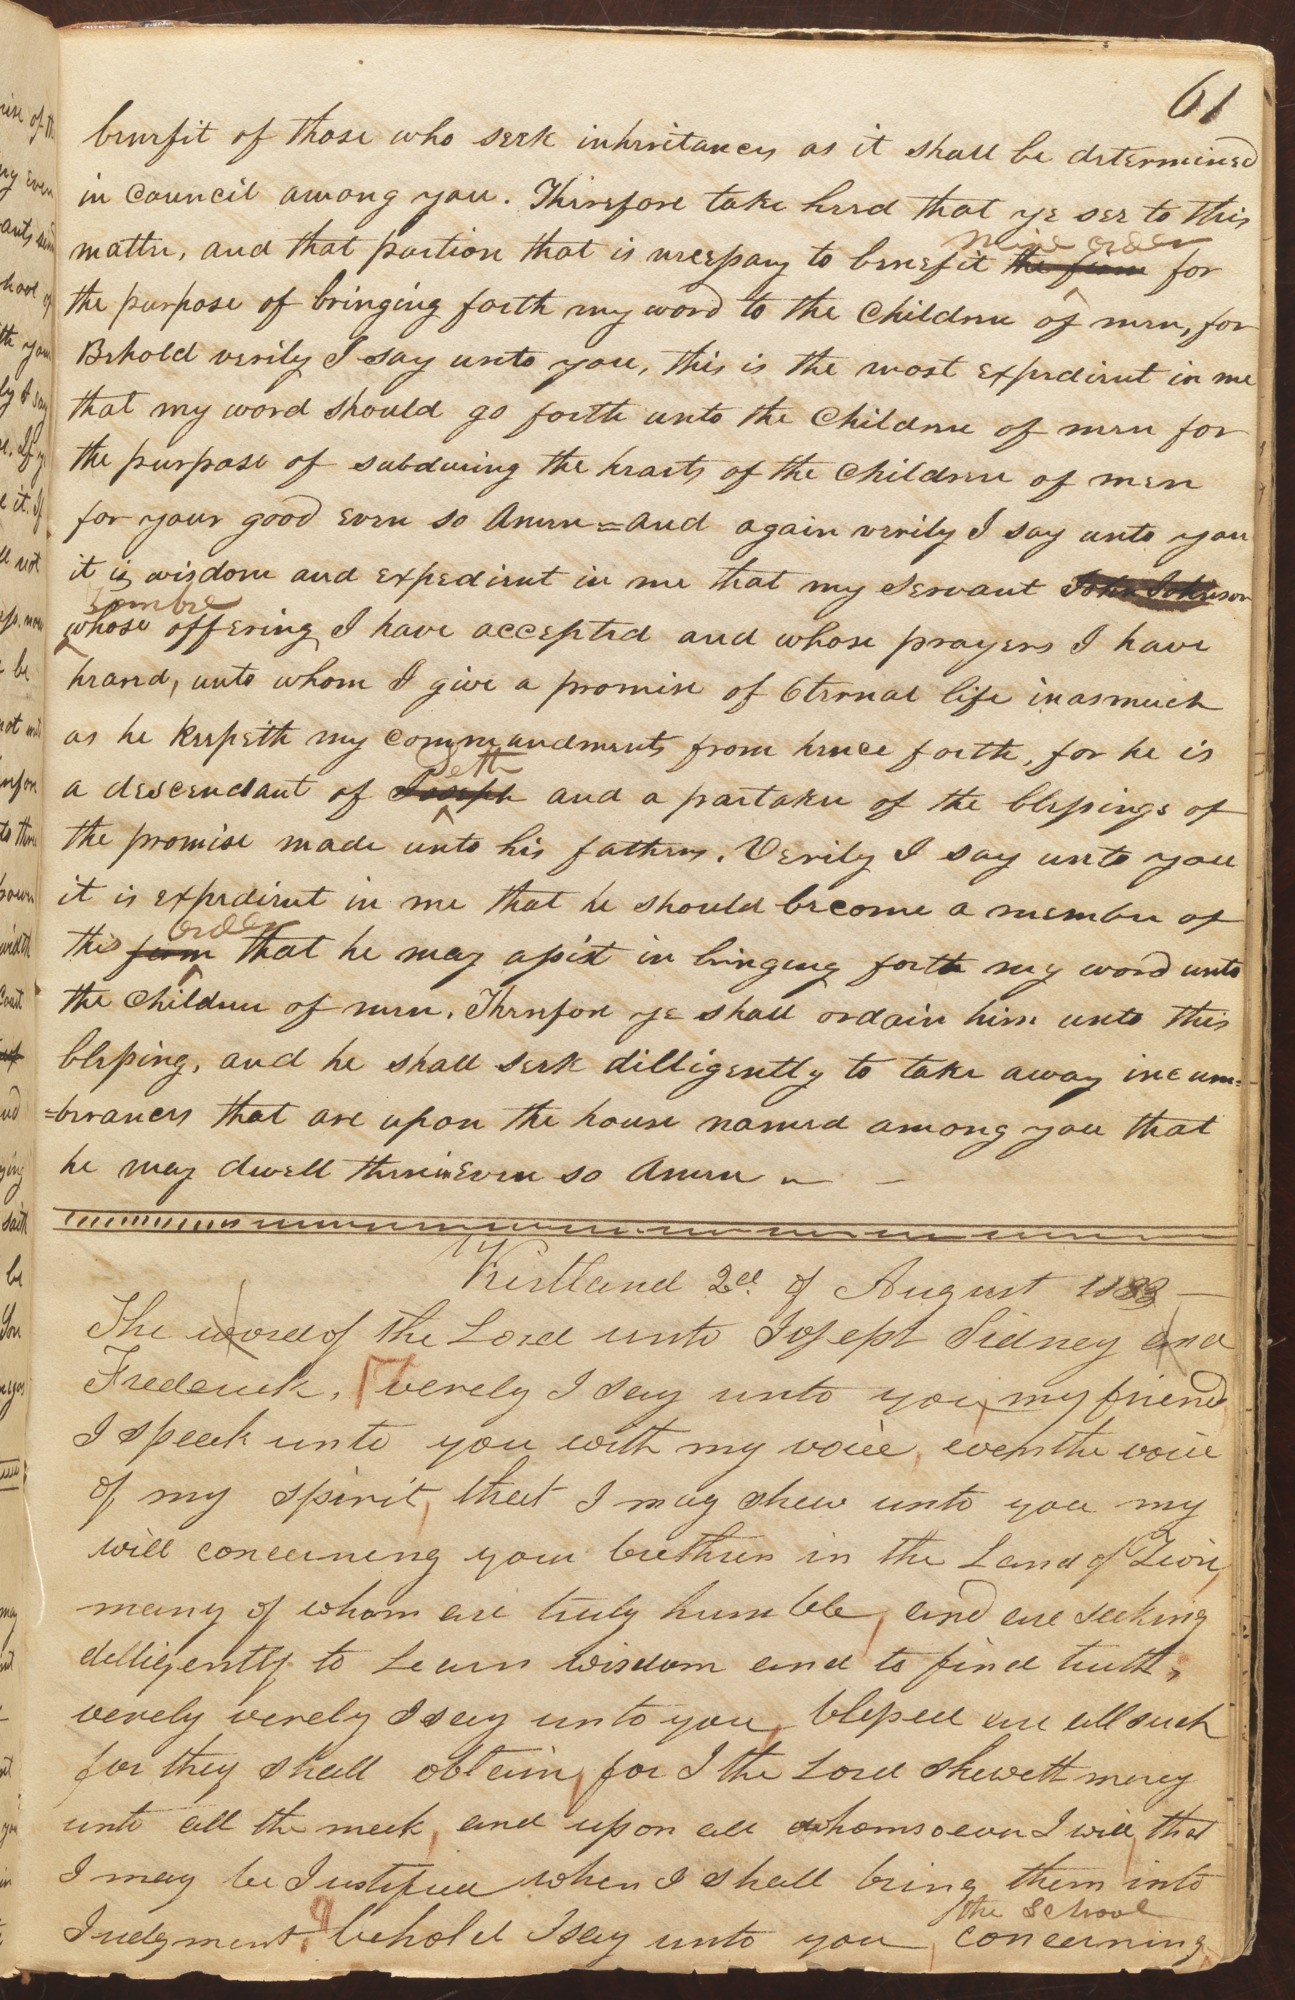 61
benefit of those who seek inheritances as it shall be determined
in council among you. Therefore take heed that ye see to this
matter, and that portion that is necessary to benefit the firm mine order for
the purpose of bringing forth my word to the children of men, for
Behold verily I say unto you, this is the most expedient in me
that my word should go forth unto the children of men for
the purpose of subdueing the hearts of the children of men
for your good even so Amen = and again verily I say unto you
it is wisdom and expedient in me that my servant John Johnson
zombre
whose offering I have accepted and whose prayers I have
heard, unto whom I give a promise of Eternal life inasmuch
as he keepeth my commandments from hence forth, for he is
a descendant of Joseph Seth and a partaker of the blessings of
the promise made unto his fathers. Verily I say unto you
it is expedient in me that he should become a member of
this firm order that he may assist in bringing forth my word unto
the children of men. Therefore ye shall ordain him unto this
blessing, and he shall seek dilligently to take away incum=
=berances that are upon the house named among you that
he may dwell therein even so Amen
Kirtland 2d. of August 1833 —
The word of the Lord unto Joseph Sidney and
Frederick, verely I say unto you, my friend
I speak unto you with my voice, even the voice
of my spirit, that I may shew unto you my
will concerning your brethren in the Land of Zion,
many of whom are truly humble, and are seeking
dilligently to Learn wisdom and to find truth,
verely verely I say unto you, blessed are all such
for they shall obtain, for I the Lord sheweth mercy
unto all the meek, and upon all whomsoever I will, that
I may be Justified when I shall bring them into
the School
Judgment, behold I say unto you, concerning